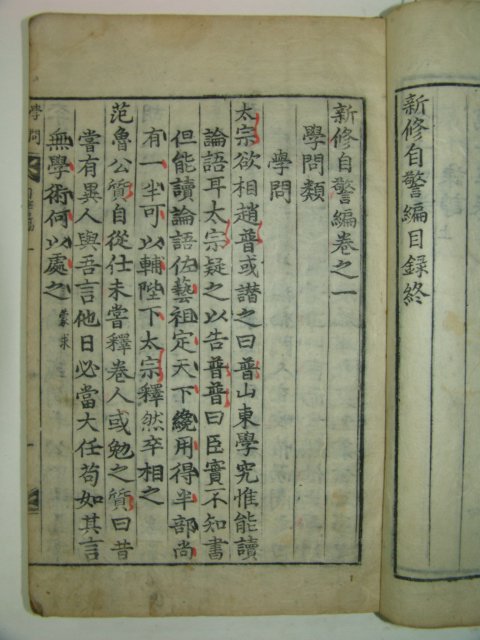 新修自警編目録終
新修自警編卷之一
學問類
學問
太宗欲相趙普或譖之曰普山東學究惟能讀
論語耳太宗疑之以告普普曰臣實不知書
但能讀論語佐藝祖定天下纔用得半部尚
有一半可以輔陛下太宗釋然卒相之
范魯公質自從仕未嘗釋卷人或勉之質曰昔
嘗有異人與吾言他日必當大任苟如其言
無學術何以處之 蒙求
學問